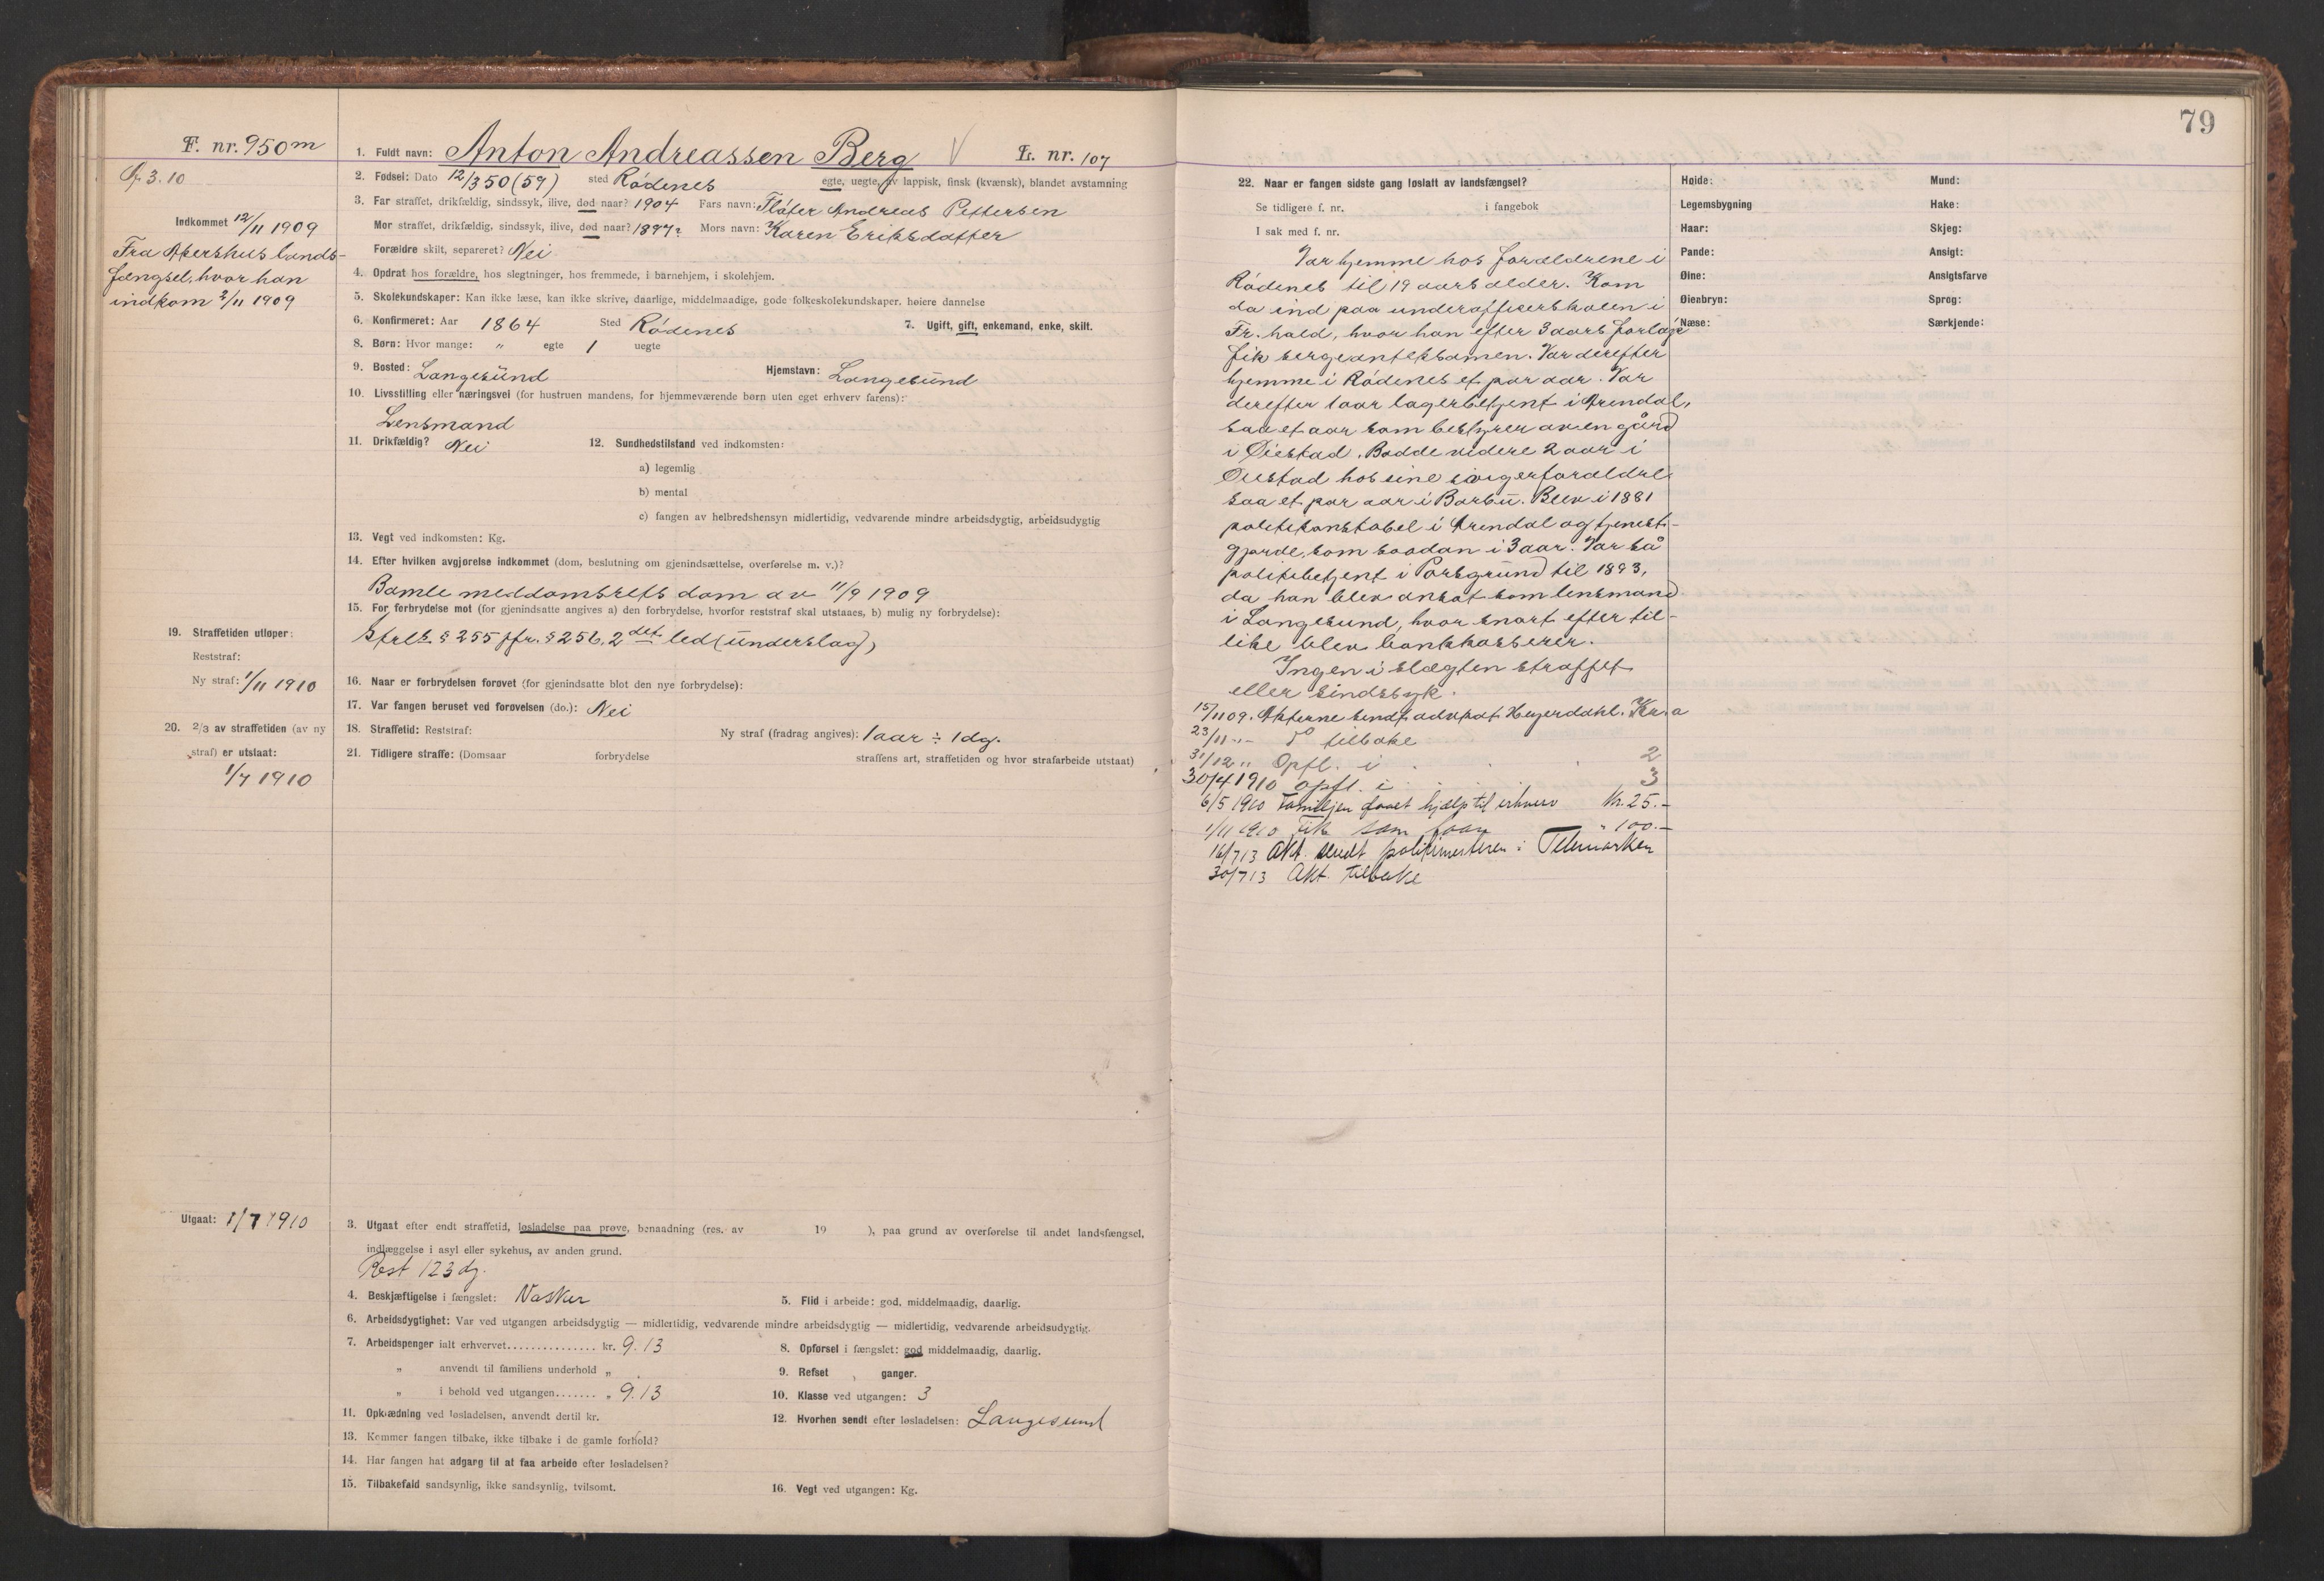 F. nr. 950 m
1. Fuldt navn: Anton Andreassen Berg V L. nr. 107
Indkommet 12/11 1909
Fra Akershus lands-
fængsel, hvor han
indkom 2/11 1909
2. Fødsel: Dato 12/3 50 (59) sted Rödenes egte, uegte, av lappisk, finsk (kvænsk), blandet avstamning
3. Far straffet, drikfældig, sindssyk, ilive, død naar? 1904 Fars navn: Fløter Andreas Pettersen
Mor straffet, drikfældig, sindssyk, ilive, død naar? 1897? Mors navn: Karen Eriksdatter
Forældre skilt, separeret? Nei
4. Opdrat hos forældre, hos slegtninger, hos fremmede, i barnehjem, i skolehjem.
5. Skolekundskaper: Kan ikke læse, kan ikke skrive, daarlige, middelmaadige, gode folkeskolekundskaper, høiere dannelse
6. Konfirmeret: Aar 1864 Sted Rödenes 7. Ugift, gift, enkemand, enke, skilt.
8. Børn: Hvor mange: " egte 1 uegte
9. Bosted: Langesund Hjemstavn: Langesund
10. Livsstilling eller næringsvei (for hustruen mandens, for hjemmeværende børn uten eget erhverv farens):
Lensmand
11. Drikfældig? Nei 12. Sundhedstilstand ved indkomsten:
a) legemlig
b) mental
c) fangen av helbredshensyn midlertidig, vedvarende mindre arbeidsdygtig, arbeidsudygtig
13. Vegt ved indkomsten: Kg.
14. Efter hvilken avgjørelse indkommet (dom, beslutning om gjenindsættelse, overførelse m. v.)?
Bamle meddomsrets dom av 11/9 1909
15. For forbrydelse mot (for gjenindsatte angives a) den forbrydelse, hvorfor reststraf skal utstaaes, b) mulig ny forbrydelse):
Strls § 255 jfr. § 256, 2det led (underslag)
19. Straffetiden utløper:
Reststraf:
Ny straf: 1/11 1910
16. Naar er forbrydelsen forøvet (for gjenindsatte blot den nye forbrydelse):
17. Var fangen beruset ved forøvelsen (do.): Nei
20. 2/3 av straffetiden (av ny
straf) er utstaat:
1/7 1910
18. Straffetid: Reststraf: Ny straf (fradrag angives): 1 aar ÷ 1 dg.
21. Tidligere straffe: (Domsaar forbrydelse straffens art, straffetiden og hvor strafarbeide utstaat)
Utgaat: 1/7 1910
3. Utgaat efter endt straffetid, løsladelse paa prøve, benaadning (res. av 19 ), paa grund av overførelse til andet landsfængsel,
indlæggelse i asyl eller sykehus, av anden grund.
Rest 123 dg.
4. Beskjæftigelse i fængslet: Vasker 5. Flid i arbeide: god, middelmaadig, daarlig.
6. Arbeidsdygtighet: Var ved utgangen arbeidsdygtig — midlertidig, vedvarende mindre arbeidsdygtig — midlertidig, vedvarende arbeidsudygtig.
7. Arbeidspenger ialt erhvervet............... kr. 9.13 8. Opførsel i fængslet: god middelmaadig, daarlig.
" anvendt til familiens underhold " 9. Refset ganger.
" i behold ved utgangen....... " 9.13 10. Klasse ved utgangen: 3
11. Opklædning ved løsladelsen, anvendt dertil kr. 12. Hvorhen sendt efter løsladelsen: Langesund
13. Kommer fangen tilbake, ikke tilbake i de gamle forhold?
14. Har fangen hat adgang til at faa arbeide efter løsladelsen?
15. Tilbakefald sandsynlig, ikke sandsynlig, tvilsomt. 16. Vegt ved utgangen: Kg.
79
22. Naar er fangen sidste gang løslatt av landsfængsel?
Se tidligere f. nr. i fangebok
I sak med f. nr.
Var hjemme hos forældrene i
Rödenes til 19 aars alder. Kom
da ind paa underofficersskolen i
Fr.hald, hvor han efter 3 aars forløp
fik sergeanteksamen. Var derefter
hjemme i Rödenes et par aar. Var
derefter 1 aar lagerbetjent i Arendal,
saa et aar som bestyrer av en gård
i Öiestad. Bodde videre 2 aar i
Öiestad hos sine svigerforældre
saa et par aar i Barbu. Blev i 1881
politikonstabel i Arendal og tjenest-
gjorde, som saadan i 3 aar. Var så
politibetjent i Porsgrund til 1893,
da han blev ansat som lensmand
i Langesund, hvor snart efter til-
like blev bankkasserer.
Ingen i slægten straffet
eller sindssyk.
15/11 09. Akterne sendt advokat Heyerdahl. Kr.a
23/11 " — do tilbake
31/12 " Opfl. i 2
30/4 1910 opfl. i 3
6/5 1910 Familjen faaet hjælp til erhverv Kr. 25.-
1/11 1910 fik " 100.-
16/7 13 Akt. sendt politimesteren i Telemarken
30/7 13 Akt. tilbake
Høide:
Legemsbygning
Haar:
Pande:
Øine:
Øienbryn:
Næse:
Mund:
Hake:
Skjeg:
Ansigt:
Ansigtsfarve
Sprog:
Særkjende: